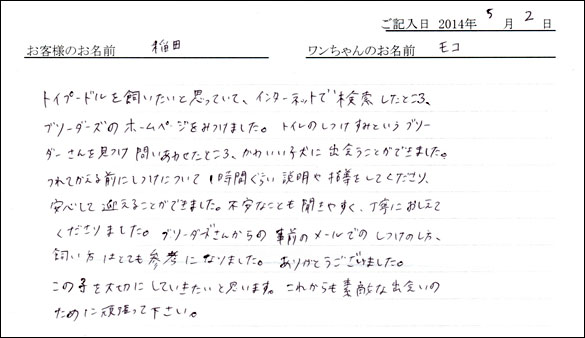 ご記入日 2014年 5 月 2 日
お客様のお名前 稲田 ワンちゃんのお名前 モコ
トイプードルを飼いたいと思っていて、インターネットで検索したところ、
ブリーダーズのホームページをみつけました。トイレのしつけすみというブリー
ダーさんを見つけ問いあわせたところ、かわいい子犬に出会うことができました。
つれてかえる前にしつけについて1時間ぐらい説明や指導をしてくださり、
安心して迎えることができました。不安なことも聞きやすく、丁寧におしえて
くださりました。ブリーダーズさんからの事前のメールでのしつけのし方、
飼い方はとても参考になりました。ありがとうございました。
この子を大切にしていきたいと思います。これからも素敵な出会いの
ために頑張って下さい。